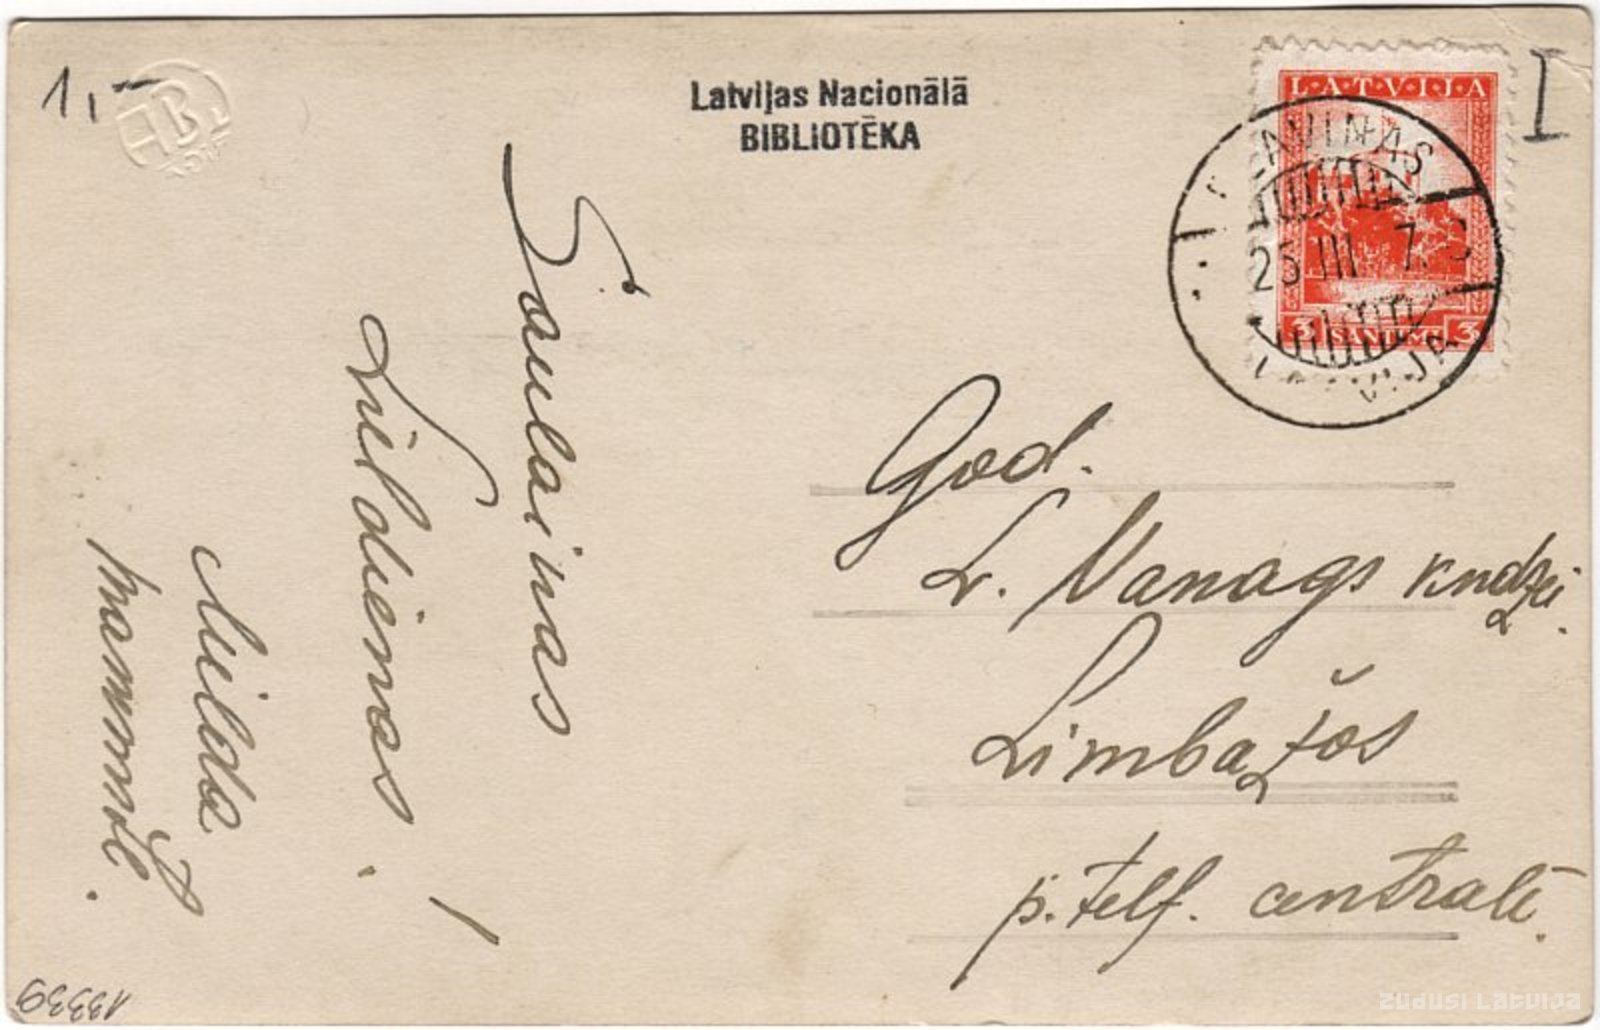 1,-
Latvijas Nacionālā
BIBLIOTĒKA
I
LATVIJA
3 SANTIMI 3
PĻAVIŅAS
LATVIJA
Saulainas
Lieldienas!
Milda
God.
L. Vanags kndzei.
Limbažos
p. telf. centralē.
13339
zudusi Latvija